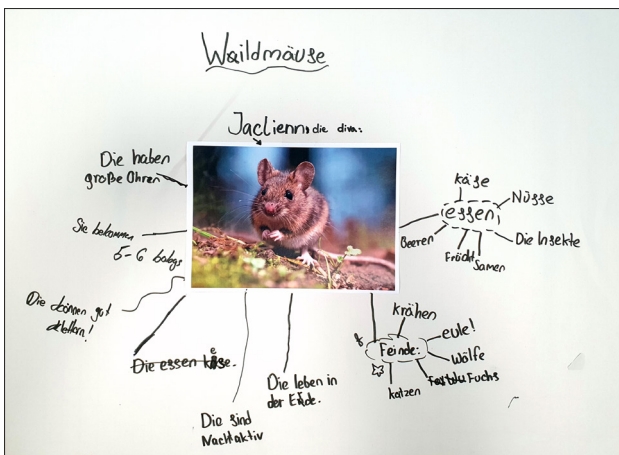 Waildmäuse
Jaclienn, die diva:
Die haben
große Ohren
Sie bekommen
5-6 babys
Die können gut
klettern!
Die essen käse.
Die sind
Nachtaktiv
Die leben in
der Erde.
essen
käse
Nüsse
Die Insekte
Samen
Frücht
Beeren
Feinde:
krähen
eule!
Wölfe
Fuchs
katzen